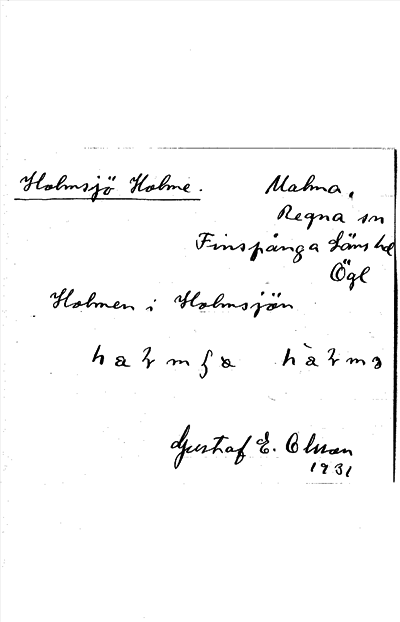 Holmsjö Holme. Malma,
Regna sn
Finspånga läns hd
Ögl
Holmen i Holmsjön
Gustaf E. Olsson
1931